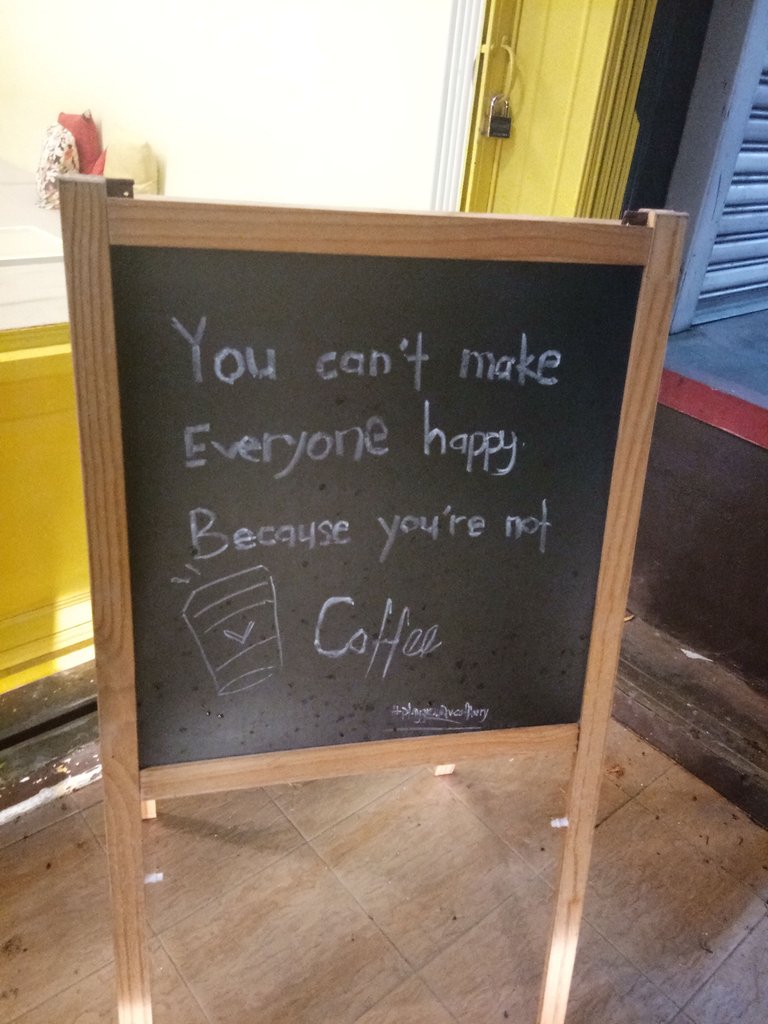 You can't make
Everyone happy.
Because you're not
Coffee